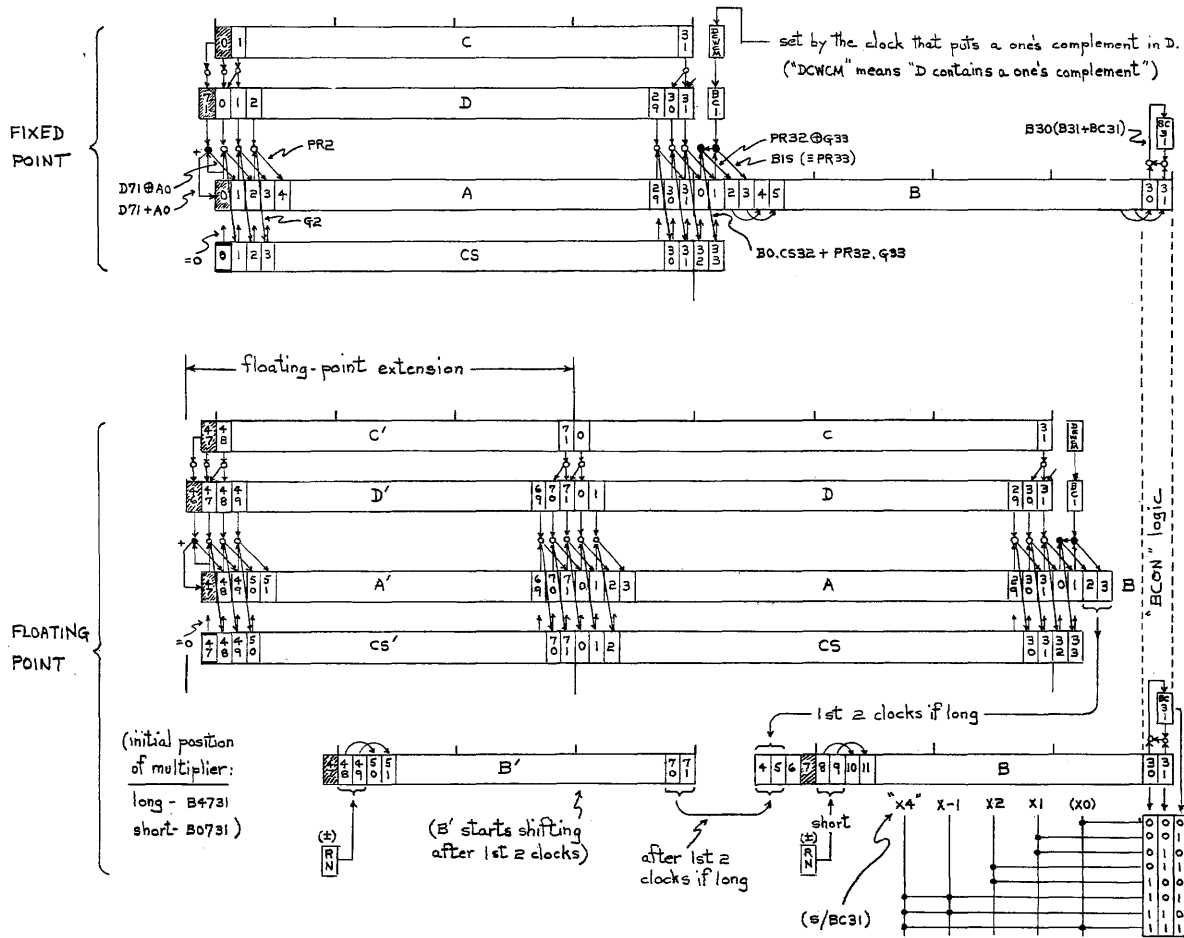 0 1 C 3 1
set by the clock that puts a one's complement in D.
("DCWCM" means "D contains a one's complement")
7 1 0 1 2 D 2 9 3 0 3 1 BC1
FIXED
POINT
PR2
PR32⊕G33
B15 (≡PR33)
B30(B31+BC31)
BC31
D71⊕A0
D71+A0
+
0 1 2 3 4 A 2 9 3 0 3 1 0 1 2 3 4 5 B 3 0 3 1
G2
=0
0 1 2 3 CS 3 0 3 1 3 2 3 3
B0.CS32 + PR32.G33
floating-point extension
4 7 4 8 C' 7 1 0 C 3 1
4 6 4 7 4 8 4 9 D' 6 9 7 0 7 1 0 1 D 2 9 3 0 3 1 BC1
"BCON" logic
+
4 7 4 8 4 9 5 0 5 1 A' 6 9 7 0 7 1 0 1 2 3 A 2 9 3 0 3 1 0 1 2 3 B
FLOATING
POINT
=0
4 7 4 8 4 9 5 0 CS' 7 0 7 1 0 1 2 CS 3 0 3 1 3 2 3 3
1st 2 clocks if long
BC31
(initial position
of multiplier:
long - B4731
short - B0731)
4 7 4 8 4 9 5 0 5 1 B' 7 0 7 1
4 5 6 7 8 9 10 11 B 3 0 3 1
(±)
RN
(B' starts shifting
after 1st 2 clocks)
after 1st 2
clocks if long
short
(±)
RN
(S/BC31)
"X4" X-1 X2 X1 (X0)
0 0 0
0 0 1
0 1 0
0 1 1
1 0 0
1 0 1
1 1 0
1 1 1